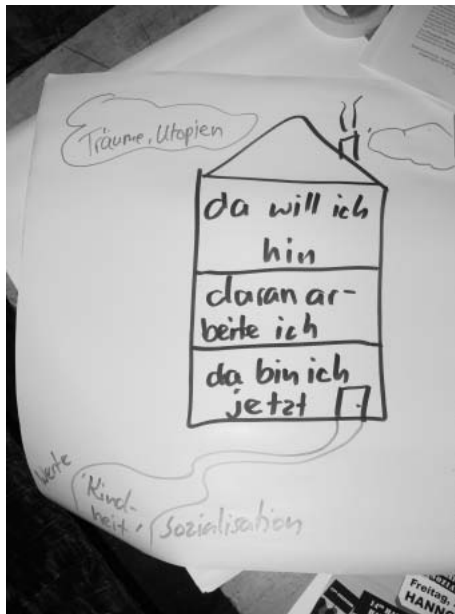 Träume, Utopien
da will ich
hin
daran ar-
beite ich
da bin ich
jetzt
Werte
Kind-
heit,
Sozialisation
Freitag,
HANN